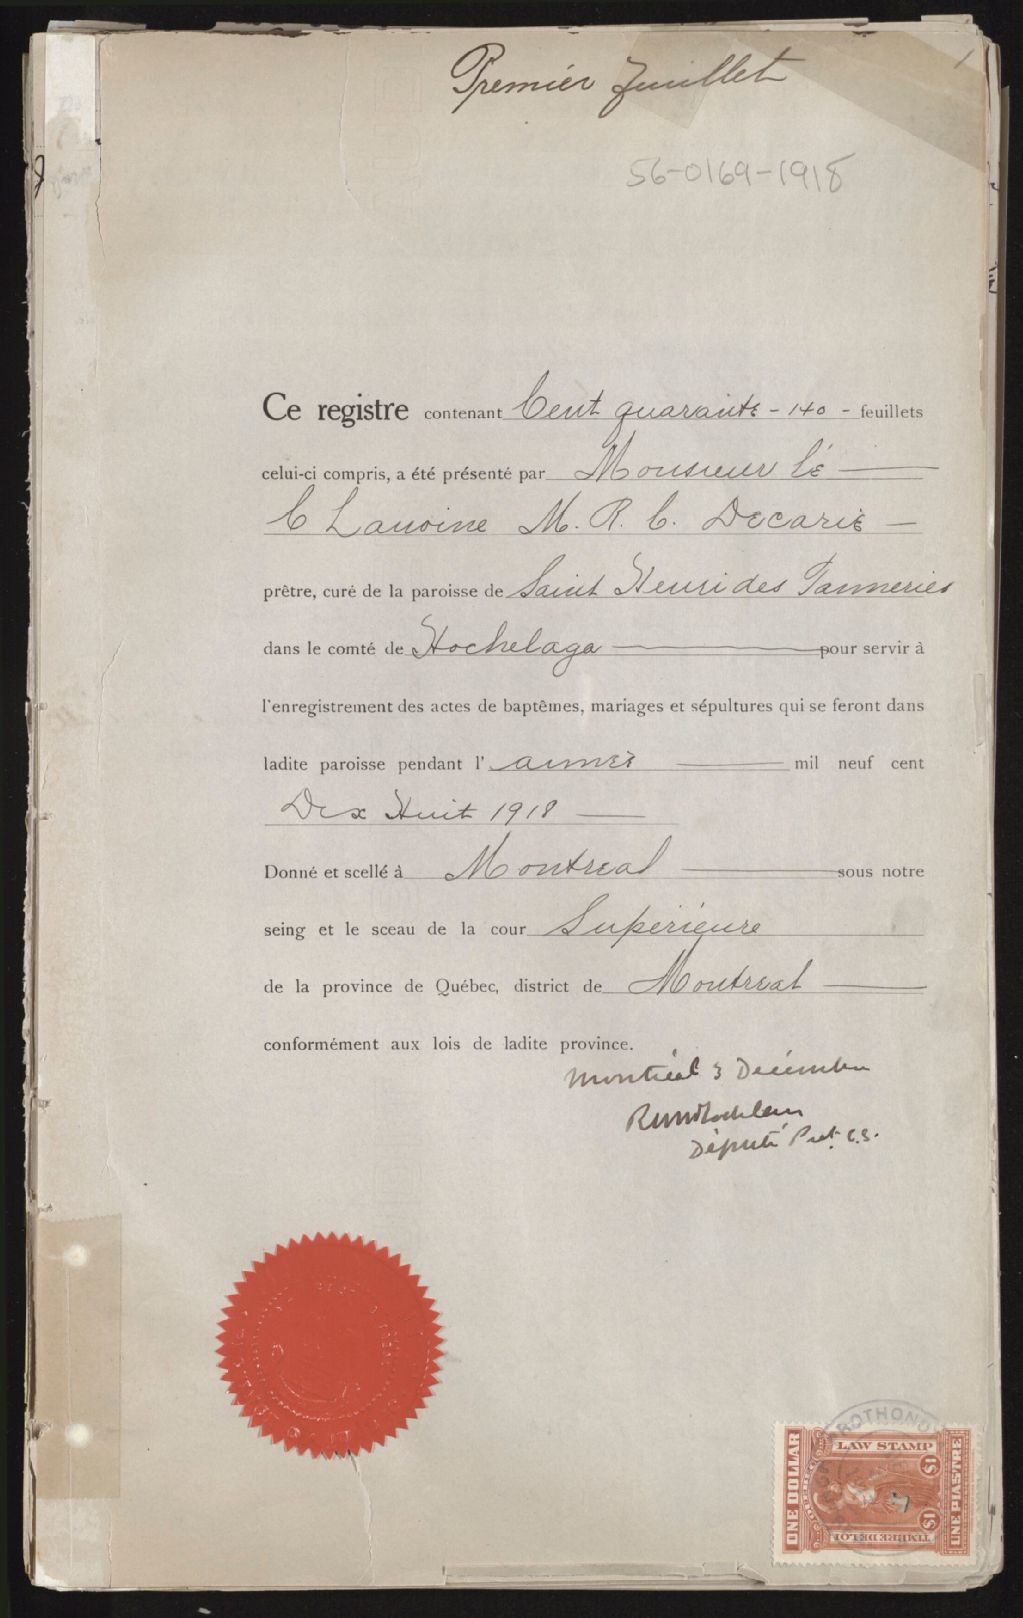 Premier feuillet
1
56-0169-1918
Ce registre contenant Cent quarante - 140 - feuillets
celui-ci compris, a été présenté par Monsieur lé
C Lanoine M. R. C. Decarie
prêtre, curé de la paroisse de Saint Henri des Tanneries
dans le comté de Hochelaga pour servir à
l'enregistrement des actes de baptêmes, mariages et sépultures qui se feront dans
ladite paroisse pendant l' année mil neuf cent
Dix Huit 1918
Donné et scellé à Montreal sous notre
seing et le sceau de la cour Supérieure
de la province de Québec, district de Montreal
conformément aux lois de ladite province.
Montréal 3 Décembre
Député Prot. C.S.
PROTHONO
LAW STAMP
ONE DOLLAR
$1
$1
UNE PIASTRE
TIMBRE DE LOI